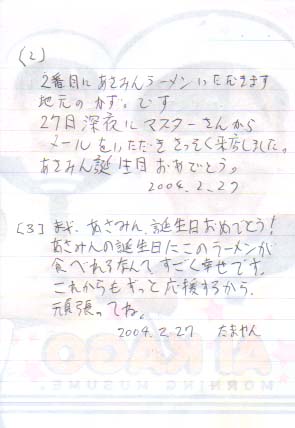 (2)
2番目にあさみんラーメンいただきます
地元のかず。です
27日深夜にマスターさんから
メールをいただきさっそく来店しました。
あさみん誕生日おめでとう。
2004.2.27
[3] 祝、あさみん、誕生日おめでとう!
あさみんの誕生日にこのラーメンが
食べれるなんて、すごく幸せです。
これからもずっと応援するから、
頑張ってね。
2004.2.27 たまやん
AI KAGO
MORNING MUSUME。